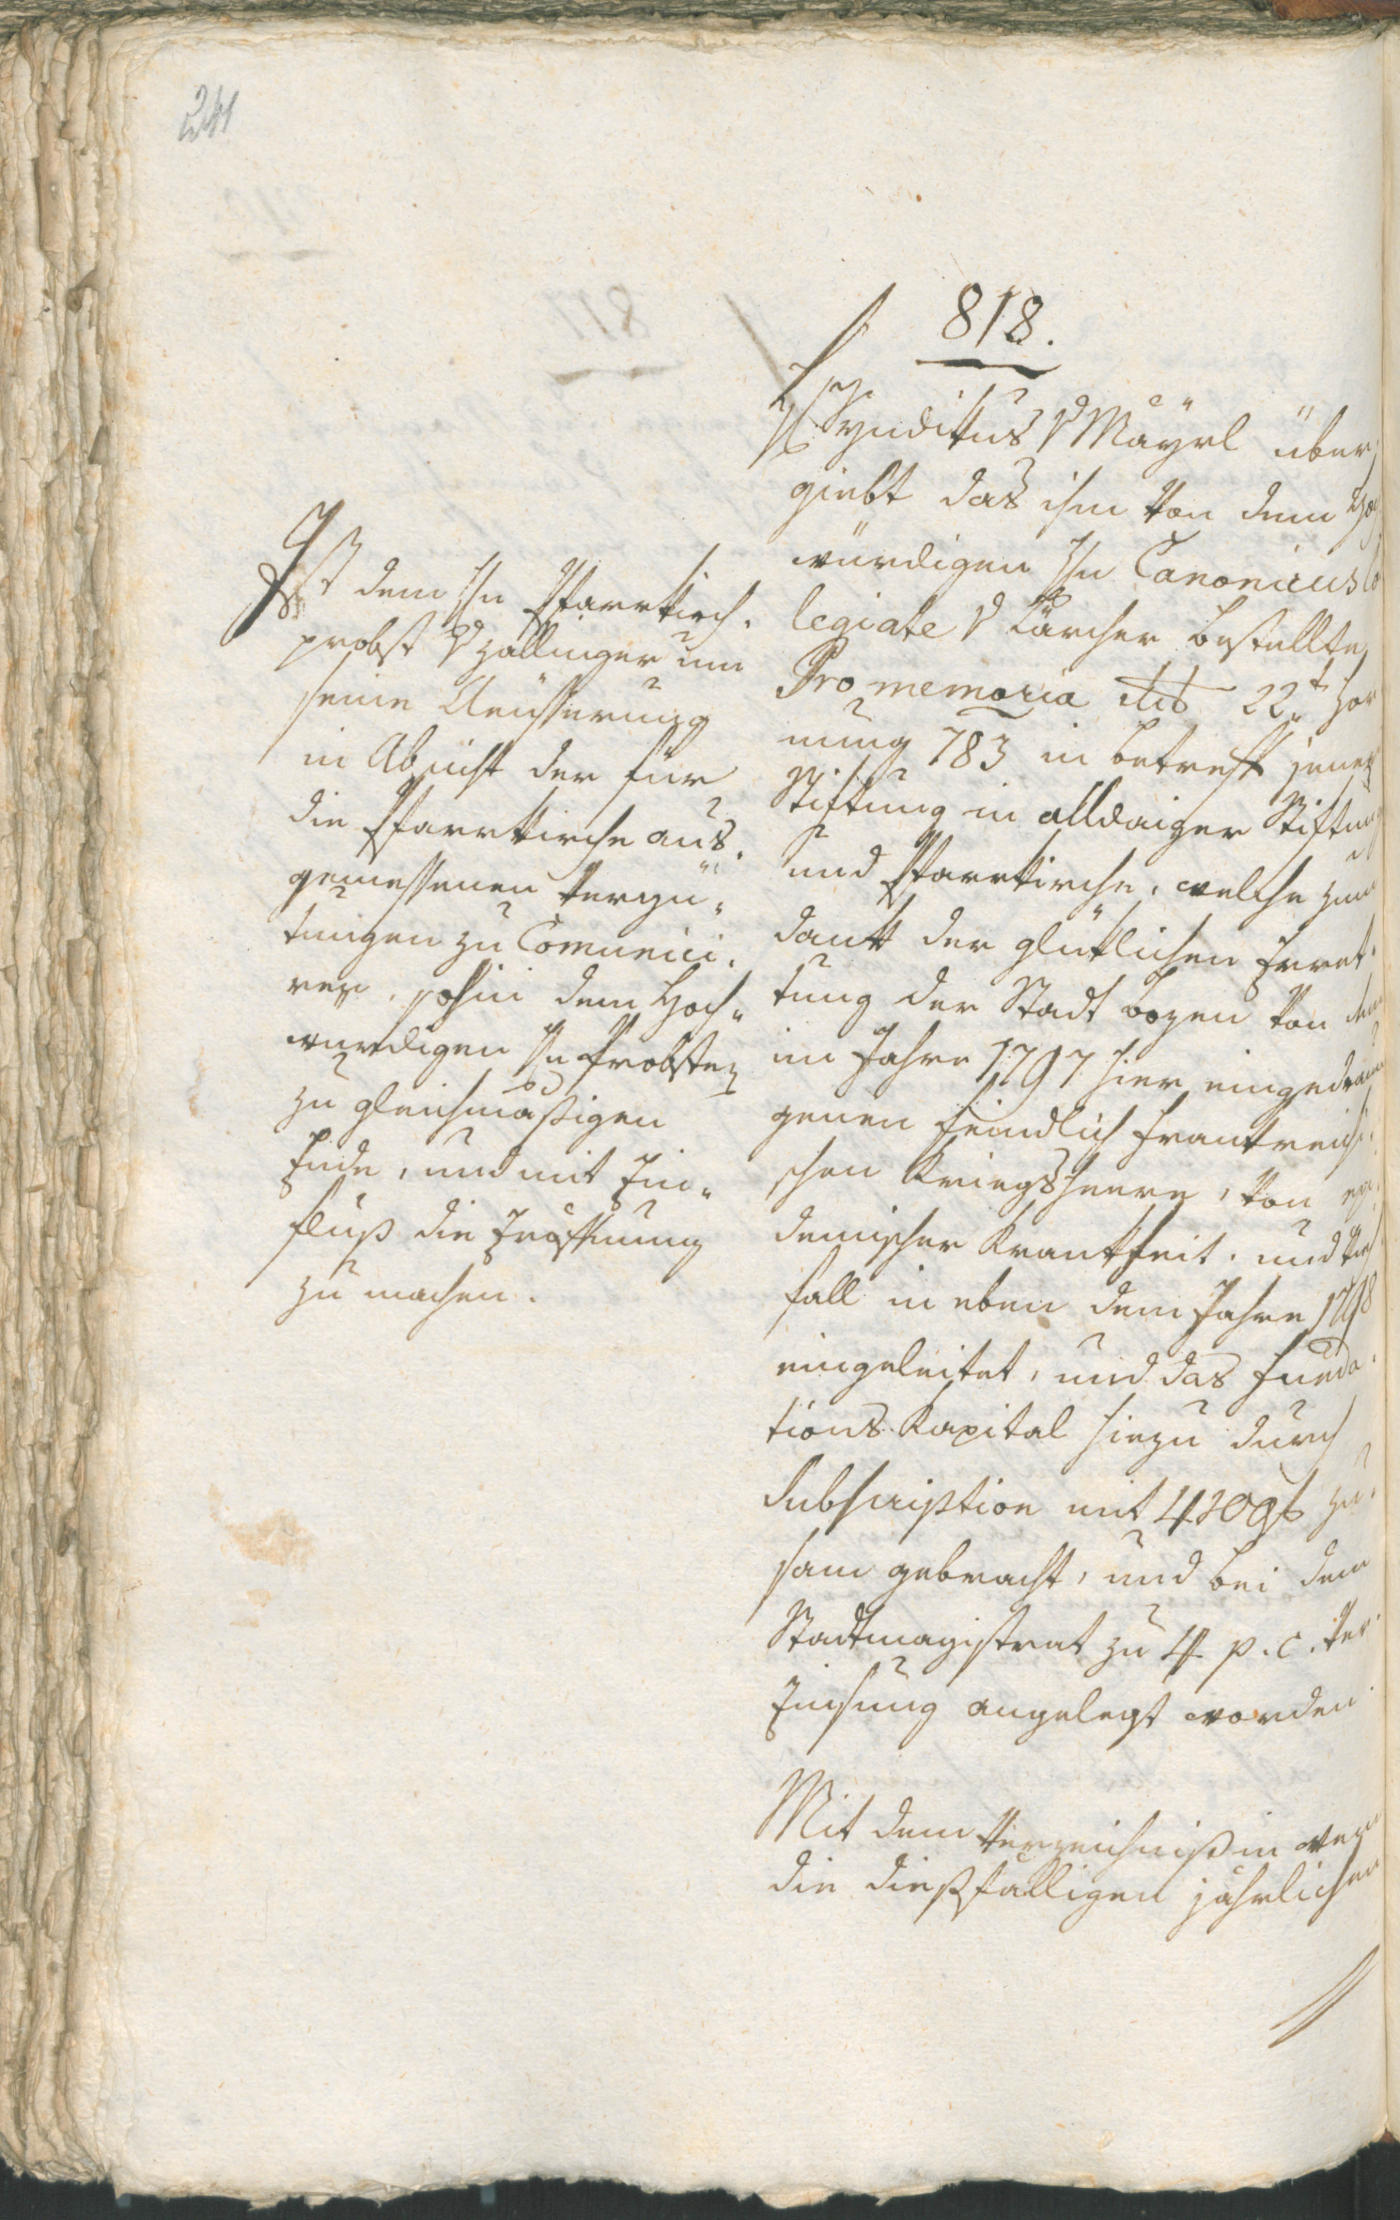 241
818.
H Syndikus v Mayrl über¬
giebt das ihm von dem Hoch
würdigen Hn Canonicus Col
legiate v Larcher bestellte
Pro memoria dto 22t Hor
nung 783 in betreff jener
Stiftung in alldaiger Stiftung
und Pfarrkirche, welche zum
dank der glüklichen Erret¬
tung der Stadt Bozen von dem
im Jahre 1797 hier eingedrun
genen feindlich Frankreichi¬
schen Kriegsheere, von epi¬
demischer Krankheit, und Vieh
fall in eben dem Jahre 1798
eingeleitet, und das Funda¬
tions Kapital hiezu durch
Subscription mit 430 f zu¬
sam gebracht, und bei dem
Stadtmagistrat zu 4 p. c. Ver¬
zinsung angelegt worden.
Mit dem Verzeichniß in
die dießfälligen jährlichen
Ist dem Hn Pfarrkirch¬
probst v Zallinger um
seine Aeusserung
in Absicht der für
die Pfarrkirche aus¬
gemessenen Vergü¬
tungen zu Comunici¬
ren, sohin dem Hoch¬
würdigen Hn Probsten
zu gleichmäßigen
Ende, und mit Ein¬
fluß die Eröffnung
zu machen.